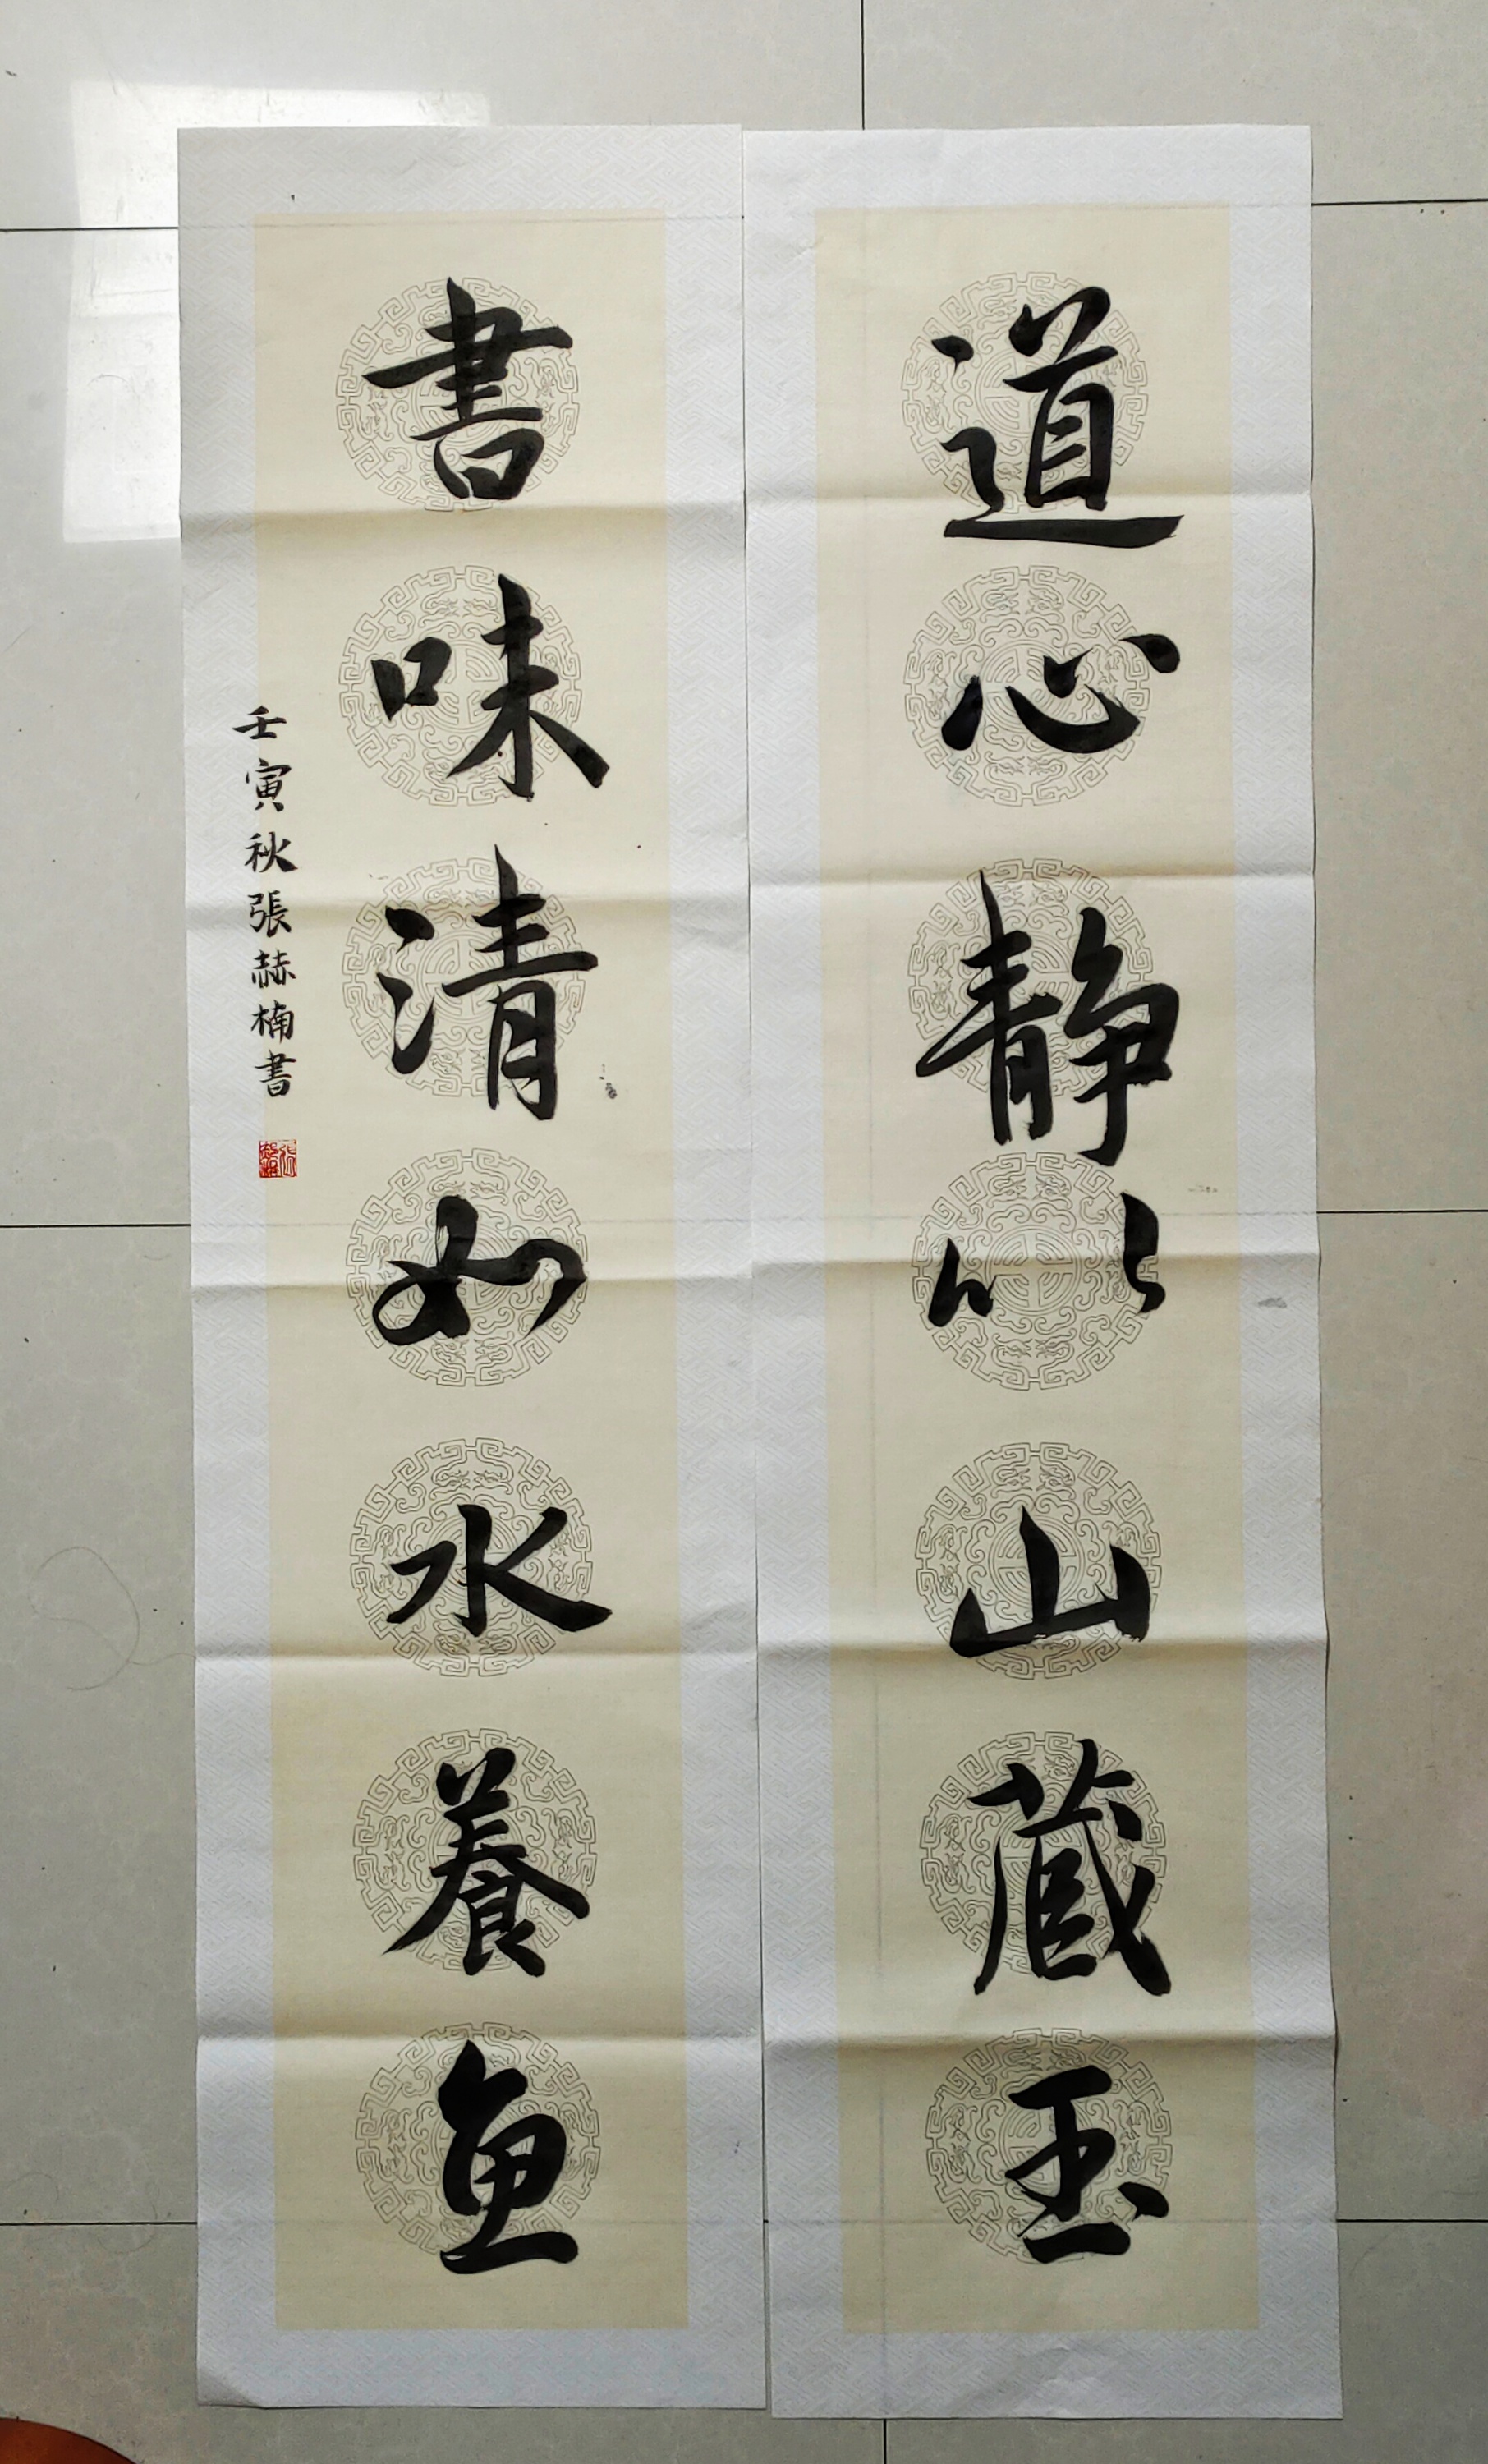 道心静似山藏玉
書味清如水養魚
壬寅秋張赫楠書